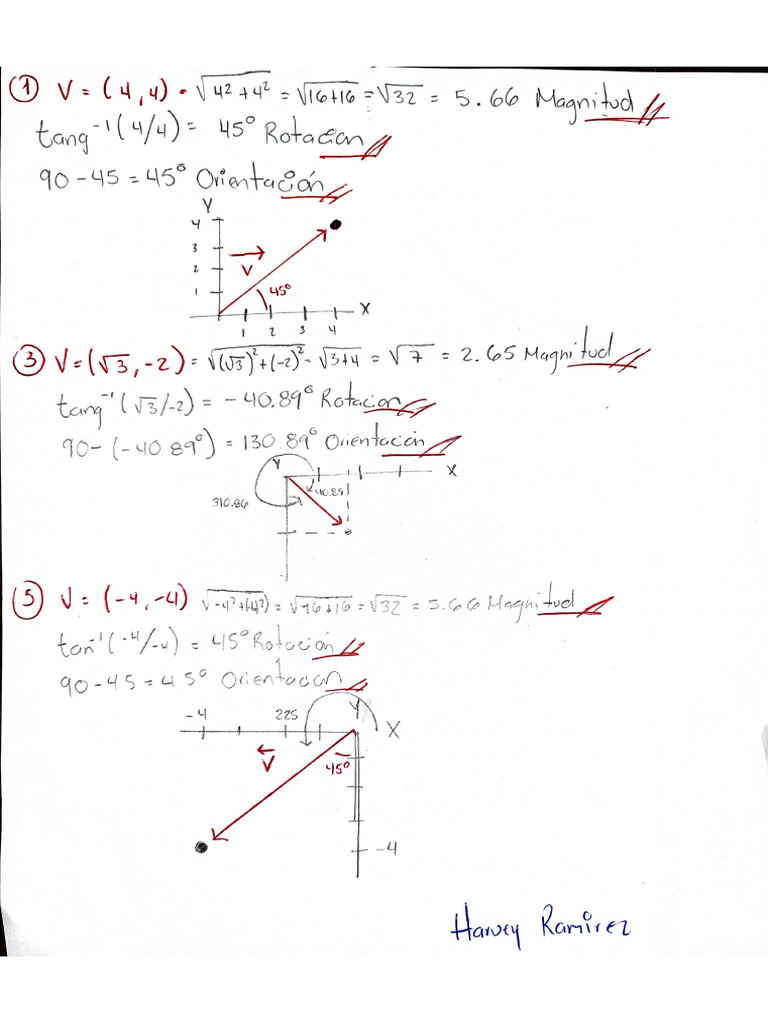 ① V = (4,4) • √4² + 4² = √16+16 = √32 = 5.66 Magnitud
tang⁻¹(4/4) = 45° Rotación
90 - 45 = 45° Orientación
Y
4
3
2
1
V
45°
X
1 2 3 4
③ V = (√3, -2) = √(√3)² + (-2)² = √3+4 = √7 = 2.65 Magnitud
tang⁻¹(√3/-2) = - 40.89° Rotacion
90 - (-40.89°) = 130.89° Orientación
Y
X
310.86
40.89
⑤ V = (-4, -4) √-4² + (-4²) = √16+16 = √32 = 5.66 Magnitud
tan⁻¹(-4/-4) = 45° Rotación
90 - 45 = 45° Orientacón
-4 225 Y
X
V
45°
-4
Harvey Ramirez